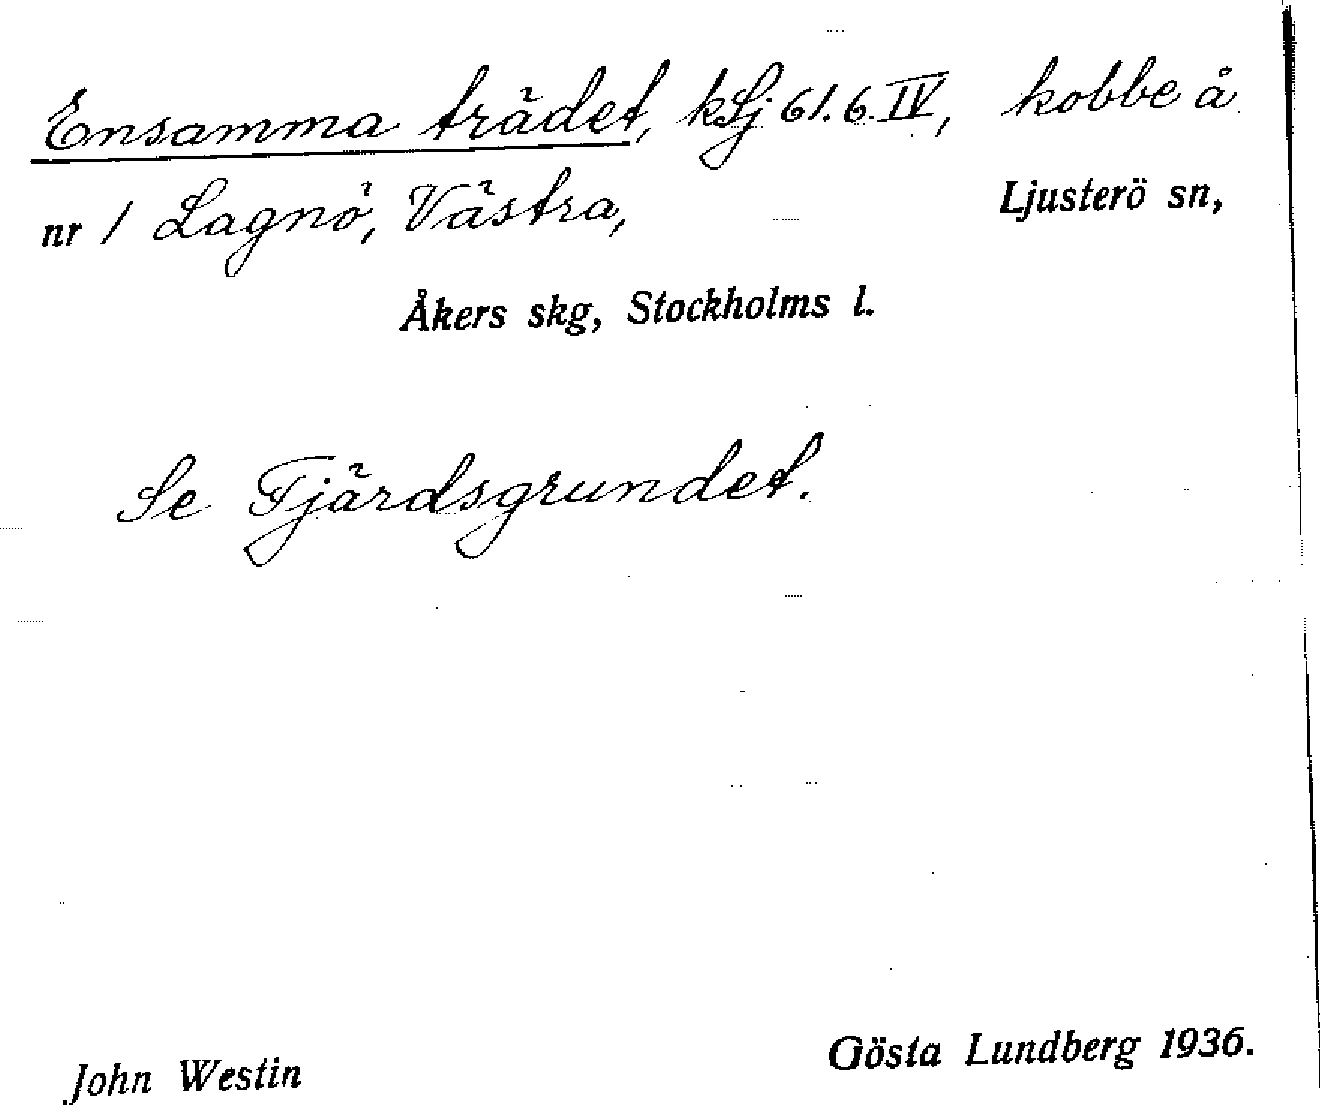 Ensamma trädet, kLj 61.6.IV, kobbe å
nr 1 Lagnö, Västra, Ljusterö sn,
Åkers skg, Stockholms l.
Se Fjärdsgrundet.
John Westin Gösta Lundberg 1936.